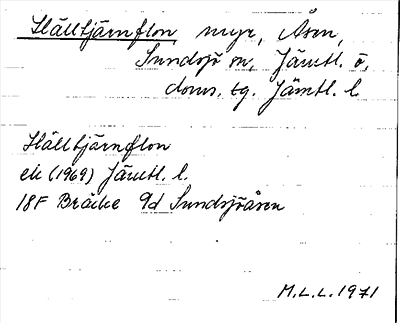 Hälltjärnflon myr, Åsen,
Sundsjö sn, Jämtl. ö.
doms. tg. Jämtl. l.
Hälltjärnflon
ek (1969) Jämtl. l.
18F Bräcke 9d Sundsjöåsen
M.L.L. 1971